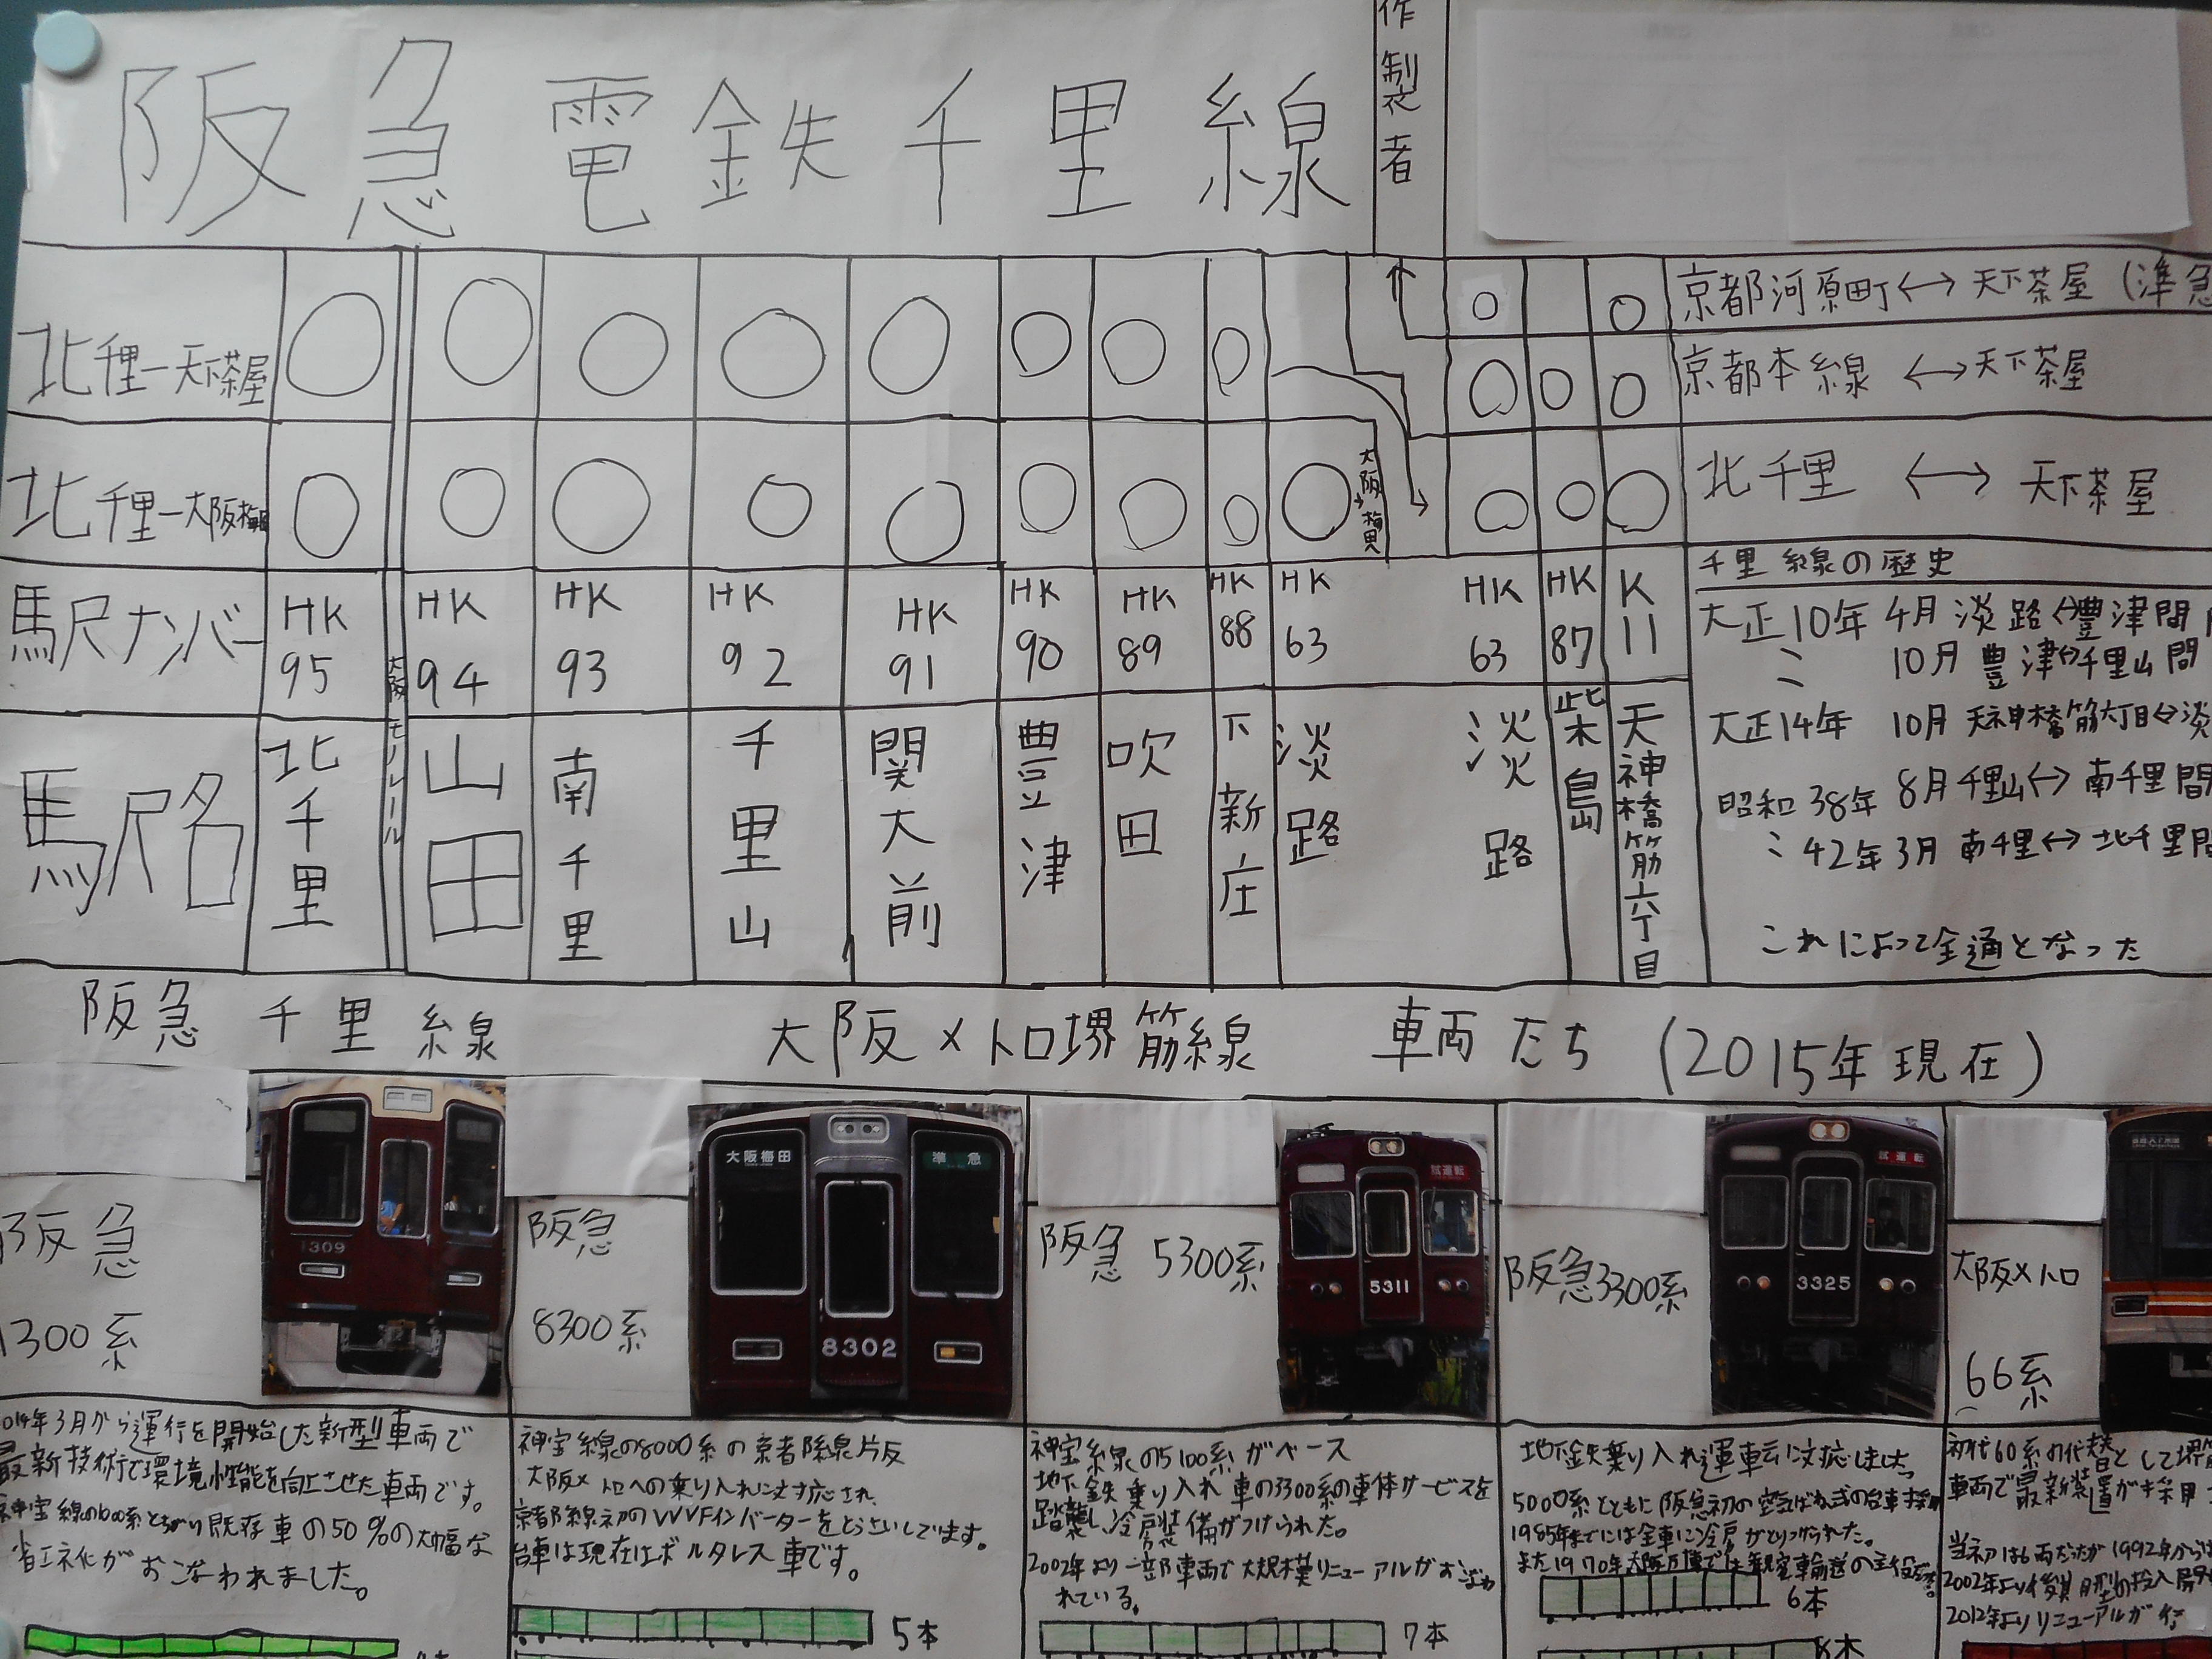 阪急電鉄千里線
作製者
北千里ー天下茶屋
京都河原町⟷天下茶屋(準急
京都本線⟷天下茶屋
北千里ー大阪梅田
大阪梅田
北千里⟷天下茶屋
駅ナンバー
HK 95
HK 94
HK 93
HK 92
HK 91
HK 90
HK 89
HK 88
HK 63
HK 63
HK 87
K 11
駅名
北千里
大阪モノレール
山田
南千里
千里山
関大前
豊津
吹田
下新庄
淡路
淡路
柴島
天神橋筋六丁目
千里線の歴史
大正10年 4月 淡路⟷豊津間
〃 10月 豊津⟷千里山間
大正14年 10月 天神橋筋六丁目⟷淡
昭和38年 8月 千里山⟷南千里間
〃 42年3月 南千里⟷北千里間
これによって全通となった
阪急千里線 大阪メトロ堺筋線 車両たち(2015年現在)
阪急
1300系
1309
阪急
8300系
大阪梅田
準急
8302
阪急 5300系
試運転
5311
阪急3300系
試運転
3325
大阪メトロ
66系
014年3月から運行を開始した新型車両で
最新技術で環境性能を向上させた車両です。
神宝線の1000系とちがい既存車の50%の大幅な
省エネ化がおこなわれました。
神宝線の8000系の京都線版
大阪メトロへの乗り入れに対応され、
京都線初のVVVFインバーターをとうさいしてます。
台車は現在はボルタレス車です。
5本
神宝線の5100系がベース
地下鉄乗り入れ車の3300系の車体サービスを
踏襲し、冷房装備がつけられた。
2002年より一部車両で大規模リニューアルがおこなわ
れている。
7本
地下鉄乗り入れ運転に対応しました。
5000系とともに阪急初の空気ばね式の台車採用
1985年までには全車に冷房がとりつけられた。
また1970年大阪万博では観客輸送の主役
6本
8本
初代60系の代替として堺筋
車両で最新装置が採用
当初は6両だったが1992年からは
2002年より後期型の投入開
2012年よりリニューアルが行